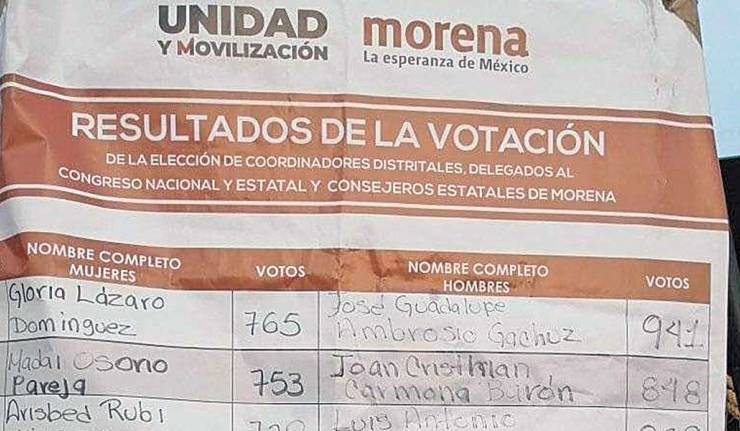 UNIDAD
Y MOVILIZACIÓN
morena
La esperanza de México
RESULTADOS DE LA VOTACIÓN
DE LA ELECCIÓN DE COORDINADORES DISTRITALES, DELEGADOS AL
CONGRESO NACIONAL Y ESTATAL Y CONSEJEROS ESTATALES DE MORENA
NOMBRE COMPLETO
MUJERES
VOTOS
NOMBRE COMPLETO
HOMBRES
VOTOS
Gloria Lázaro
Dominguez
765
José Guadalupe
Ambrosio Gachuz
941
Osorio
Pareja
753
Joan Cristhian
Carmona
848
Arisbed Rubi
Luis Antonio